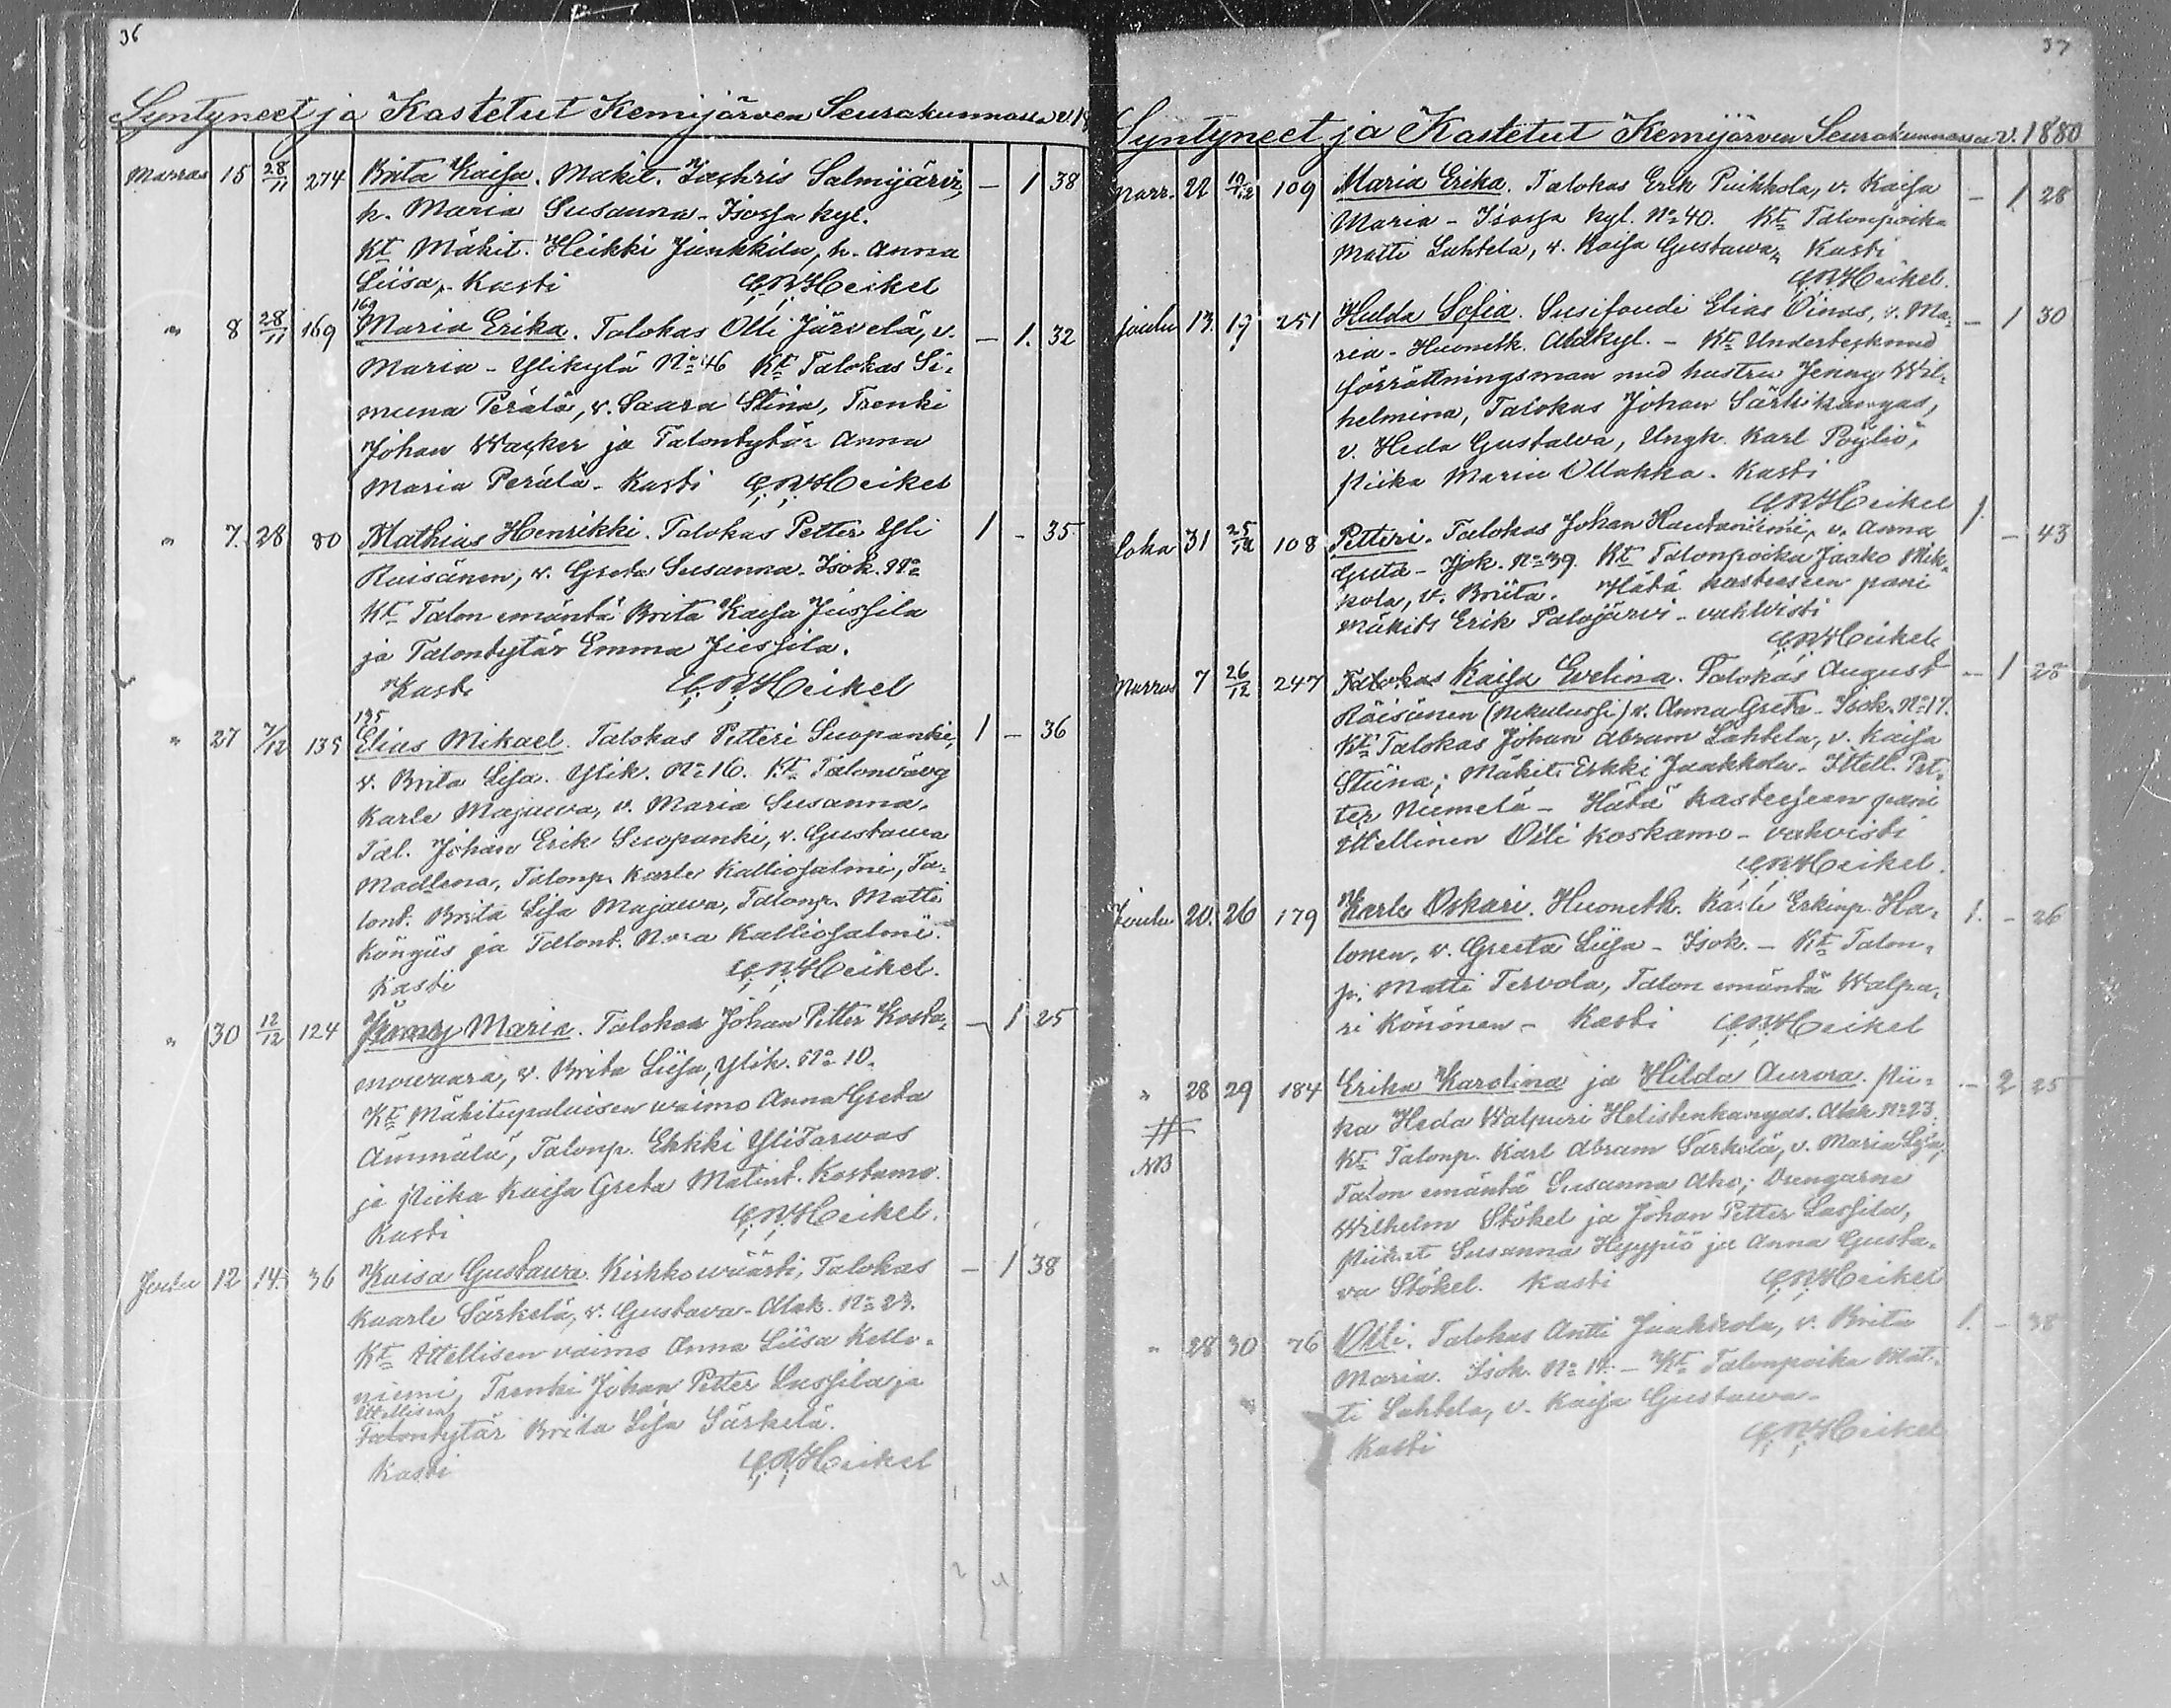 36
Syntyneet ja Kastetut Kemijärven Seurakunnassa v. 18
Marras 15 28/11 274 Brita Kaisa. Mäkit. Zachris Salmijärvi, — 1 38
h. Maria Susanna - Isossa kyl.
Kt. Mäkit. Heikki Junkkila, h. Anna
Liisa, - Kasti C.R.Heikel
169
" 8 28/11 169 Maria Erika. Talokas Olli Järvelä, v. — 1. 32
Maria - Ylikylä No 46 Kt. Talokas Si-
muna Perälä, v. Saara Stina, Trenki
Johan Wasker ja Talontytär Anna
Maria Perälä - Kasti C.R.Heikel
" 7. 28 80 Mathias Henrikki. Talokas Petter Yli 1 - 35
Räisänen, v. Greta Susanna. Isok. No
Kt. Talon emäntä Brita Kaisa Jussila
ja Talontytär Emma Jussila.
Kasti C.R.Heikel
135
" 27 7/12 135 Elias Mikael. Talokas Petteri Suopanki, 1 — 36
v. Brita Lisa. Ylik. No 16. Kt. Talonvävy
Karle Majawa, v. Maria Susanna,
Tal. Johan Erik Suopanki, v. Gustawa
Madlena, Talonp. Karle Kalliosalmi, Ta-
lont. Brita Lisa Majawa, Talonp. Matti
Köngäs ja Talont. Nora Kalliosalmi.
Kasti C.R.Heikel.
" 30 12/12 124 Jenny Maria. Talokas Johan Petter Kosta- — 1 25
mowaara, v. Brita Liisa, Ylik. No 10.
Kt. Mäkitupalaisen waimo Anna Greta
Ämmälä, Talonp. Erkki YliTarwas
ja Piika Kaisa Greta Matint. Kostamo.
Kasti C.R.Heikel.
Joulu 12 14. 36 Kaisa Gustawa. Kirkkowäärti, Talokas — 1 38
Kaarle Särkelä, v. Gustava - Alak. No 23.
Kt. Itellisen vaimo Anna Liisa Kello-
niemi, Trenki Johan Petter Lassila ja
Itellisen
Talontytär Brita Lisa Särkelä.
Kasti C.R.Heikel
37
Syntyneet ja Kastetut Kemijärven Seurakunnassa v. 1880
Marr. 22 10/12 109 Maria Erika. Talokas Erik Puikkola, v. Kaisa — 1. 28
Maria - Isossa kyl. No 40. Kt. Talonpoika
Matti Lahtela, v. Kaisa Gustawa, Kasti
C.R.Heikel.
Joulu 13. 19 251 Hulda Sofia. Susifoudi Elias Oinas, v. Ma- — 1 30
ria - Huonetk. Alakyl. - Kt. Undertecknad
förrättningsman med hustru Jenny Wil-
helmina, Talokas Johan Särkikangas,
v. Heda Gustawa, Yngk. Karl Pöyliö,
Piika Maria Ollakka. Kasti
C.R.Heikel
Loka 31 25/12 108 Petteri. Talokas Johan Hautaniemi, v. Anna 1. — 43
Greta - Isok. No 39. Kt. Talonpoika Jaako Mik-
kola, v. Briita. Hätä kasteeseen pani
Mäkits Erik Palojärvi - vahvisti
C.R.Heikel.
Marras 7 26/12 247 Talokas Kaisa Evelina. Talokas August — 1 28
Räisänen (Nikulussi) v. Anna Greta - Isok. No 17.
Kt. Talokas Johan Abram Lahtela, v. Kaisa
Stiina; Mäkit. Erkki Jaakkola - Itell. Pet-
ter Niemelä - Hätä kasteeseen pani
Itellinen Olli Koskamo - vahvisti
C.R.Heikel.
Joulu 20. 26 179 Karle Oskari. Huonetk. Karle Erkinp. Ha- 1. — 26
lonen, v. Greeta Liisa - Isok. - Kt. Talon-
p. Matti Tervola, Talon emäntä Walpu-
ri Könönen - Kasti C.R.Heikel
" 28 29 184 Erika Karolina ja Hilda Aurora. Pii- — 2 25
ka Heda Walpuri Helistenkangas. Alak. No 23.
NB Kt. Talonp. Karl Abram Särkelä, v. Maria Lisa,
Talon emäntä Susanna Aho; Drengarne
Wilhelm Stökel ja Johan Petter Lassila,
Piikat Susanna Hyypiö ja Anna Gusta-
va Stökel. Kasti C.R.Heikel
" 28 30 76 Olli. Talokas Antti Jaakkola, v. Brita 1. — 38
Maria. Isok. No 14. - Kt. Talonpoika Mat-
ti Lahtela, v. Kaisa Gustawa -
Kasti C.R.Heikel